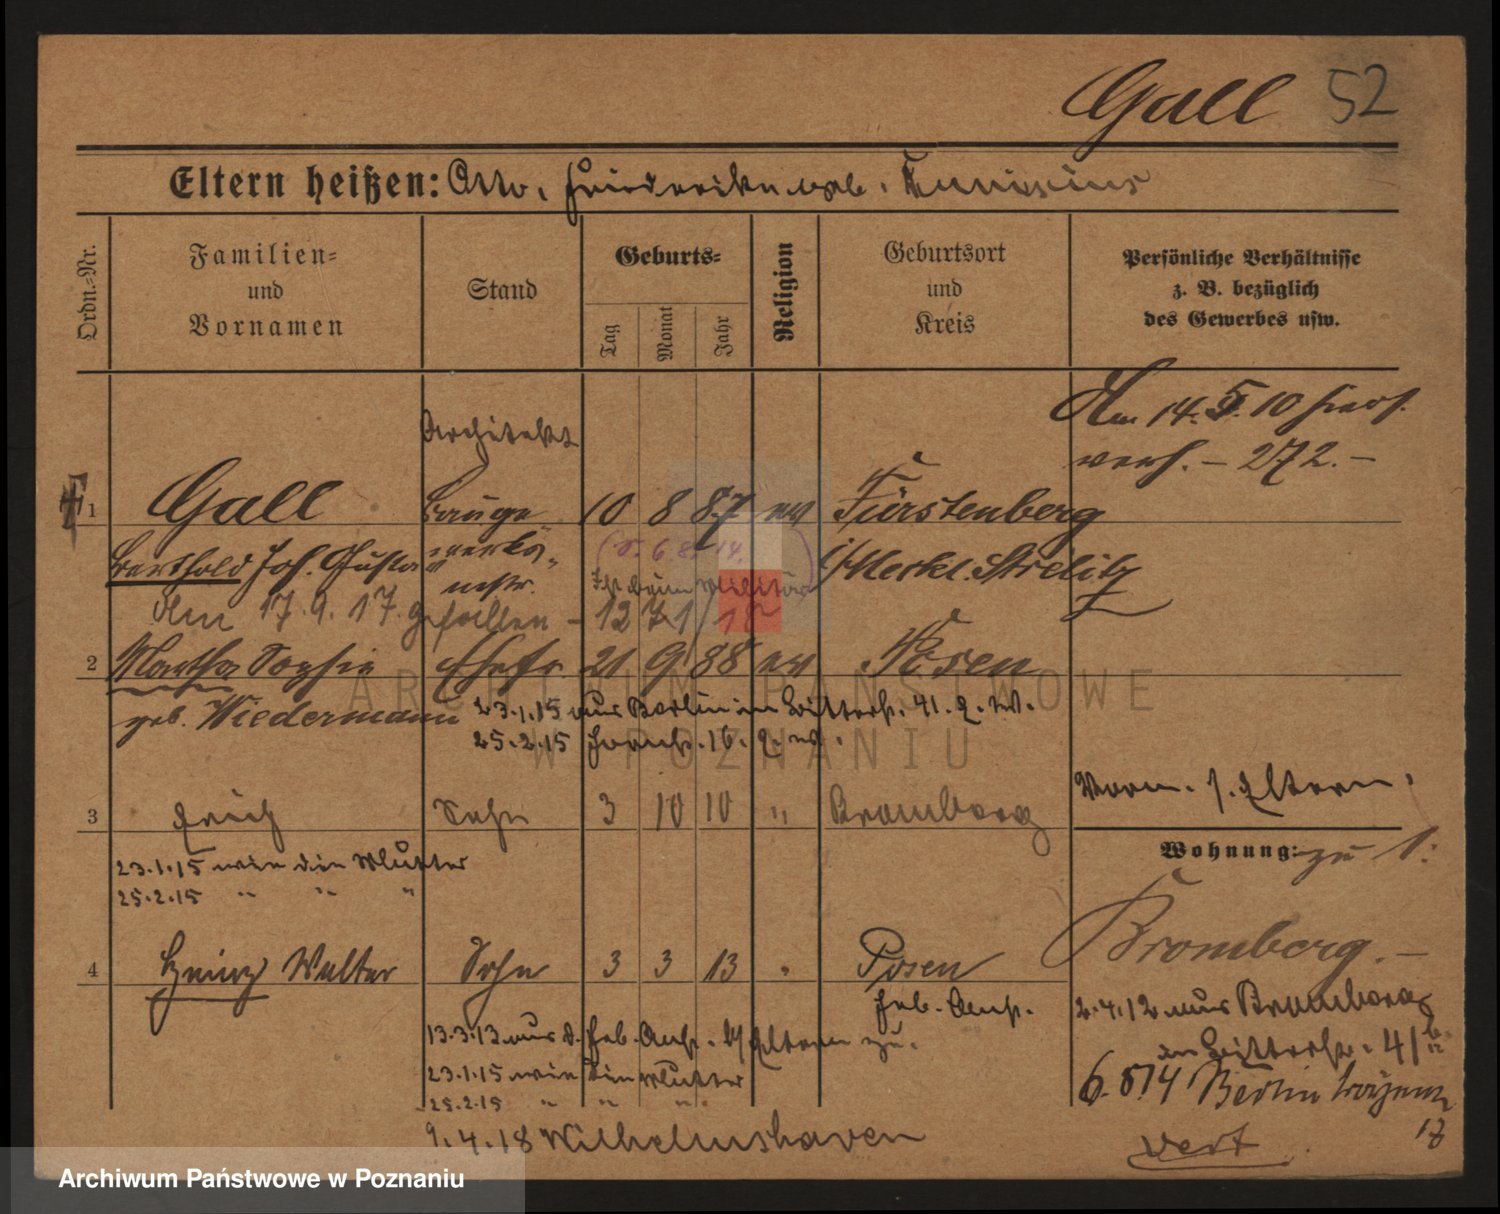 Gall 52
Eltern heißen: Otto, Friederike geb.
Ordn.-Nr.
Familien-
und
Vornamen
Stand
Geburts-
Tag
Monat
Jahr
Religion
Geburtsort
und
Kreis
Persönliche Verhältnisse
z. B. bezüglich
des Gewerbes usw.
Am 14. 5. 10 hier
verh. – 272. –
Architekt
1 Gall Bauge 10 8 87 ev Fürstenberg
Berthold Joh. Gustav werks- i/Meckl. Strelitz
mstr.
6. 8. 14.
Ist beim Militär
Am 17. 9. 17. gefallen – 12 71/18
2 Martha Sophie Ehefr. 21 9 88 ev Posen
geb. Wiedermann
23.1.15 aus Berlin in Ritterstr. 41. q. W.
25.2.15 16. q. W.
3 Erich Sohn 3 10 10 " Bromberg
Vorm. s. Eltern.
23.1.15 wie die Mutter
25.2.15 " " "
Wohnung: zu 1:
Bromberg. –
4 Heinz Walter Sohn 3 3 13 " Posen
Heb. Anst.
13.3.13 aus d. Heb. Anst. d/Eltern zu.
23.1.15 wie die Mutter
25.2.15 " " "
9.4.18 Wilhelmshaven
2.4.12 aus Bromberg
in Ritterstr. 41
6. 5 14 Berlin
18
vert
ARCHIWUM PAŃSTWOWE
W POZNANIU
Archiwum Państwowe w Poznaniu